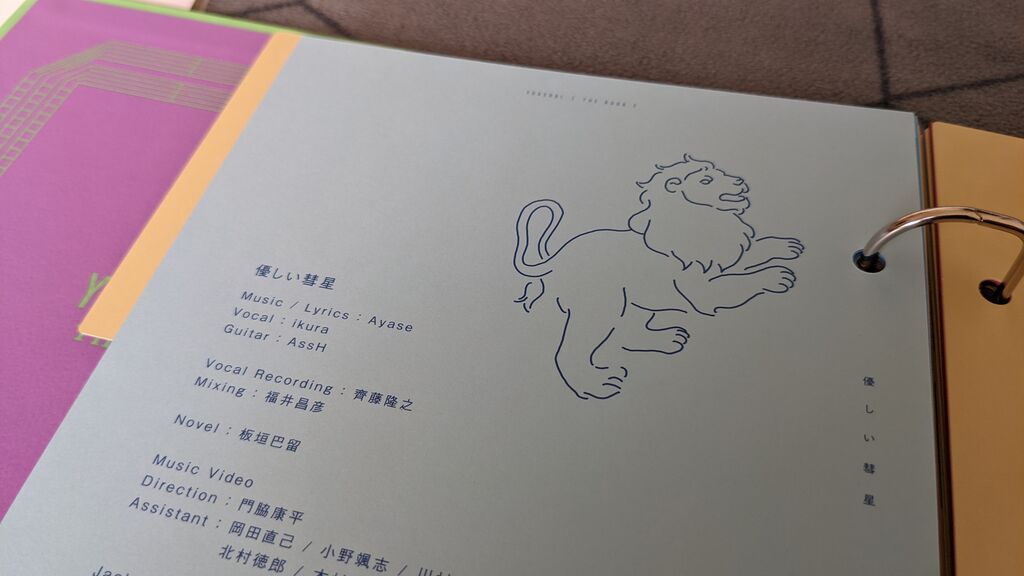 YOASOBI / THE BOOK 2
優しい彗星
Music / Lyrics : Ayase
Vocal : ikura
Guitar : AssH
Vocal Recording : 齊藤隆之
Mixing : 福井昌彦
Novel : 板垣巴留
Music Video
Direction : 門脇康平
Assistant : 岡田直己 / 小野颯志 /
北村徳郎 /
優しい彗星